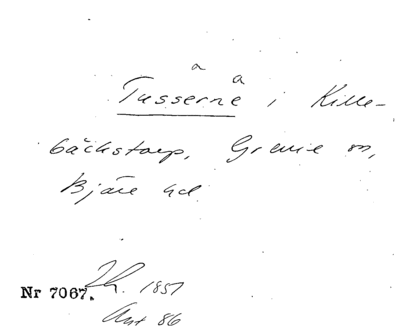 a a
Tusserne i Kille-
bäckstorp, Grevie sn,
Bjäre hd.
Nr 7067. 1857
Ant 86